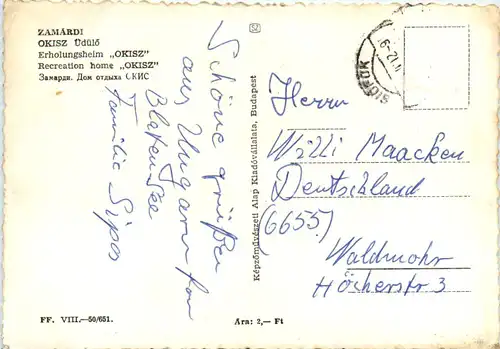 ZAMÁRDI
OKISZ Üdülő
Erholungsheim „OKISZ”
Recreation home „OKISZ”
Замарди. Дом отдыха СКИС
Schöne grüßen
aus Ungarn fon
Blaten See
Familie Sipos
Képzőművészeti Alap Kiadóvállalata, Budapest
SIÓFOK
Herrn
Willi Maacken
Deutschland
(6655)
Waldmohr
Höcherstr 3
FF. VIII.—50/651.
Ára: 2,— Ft